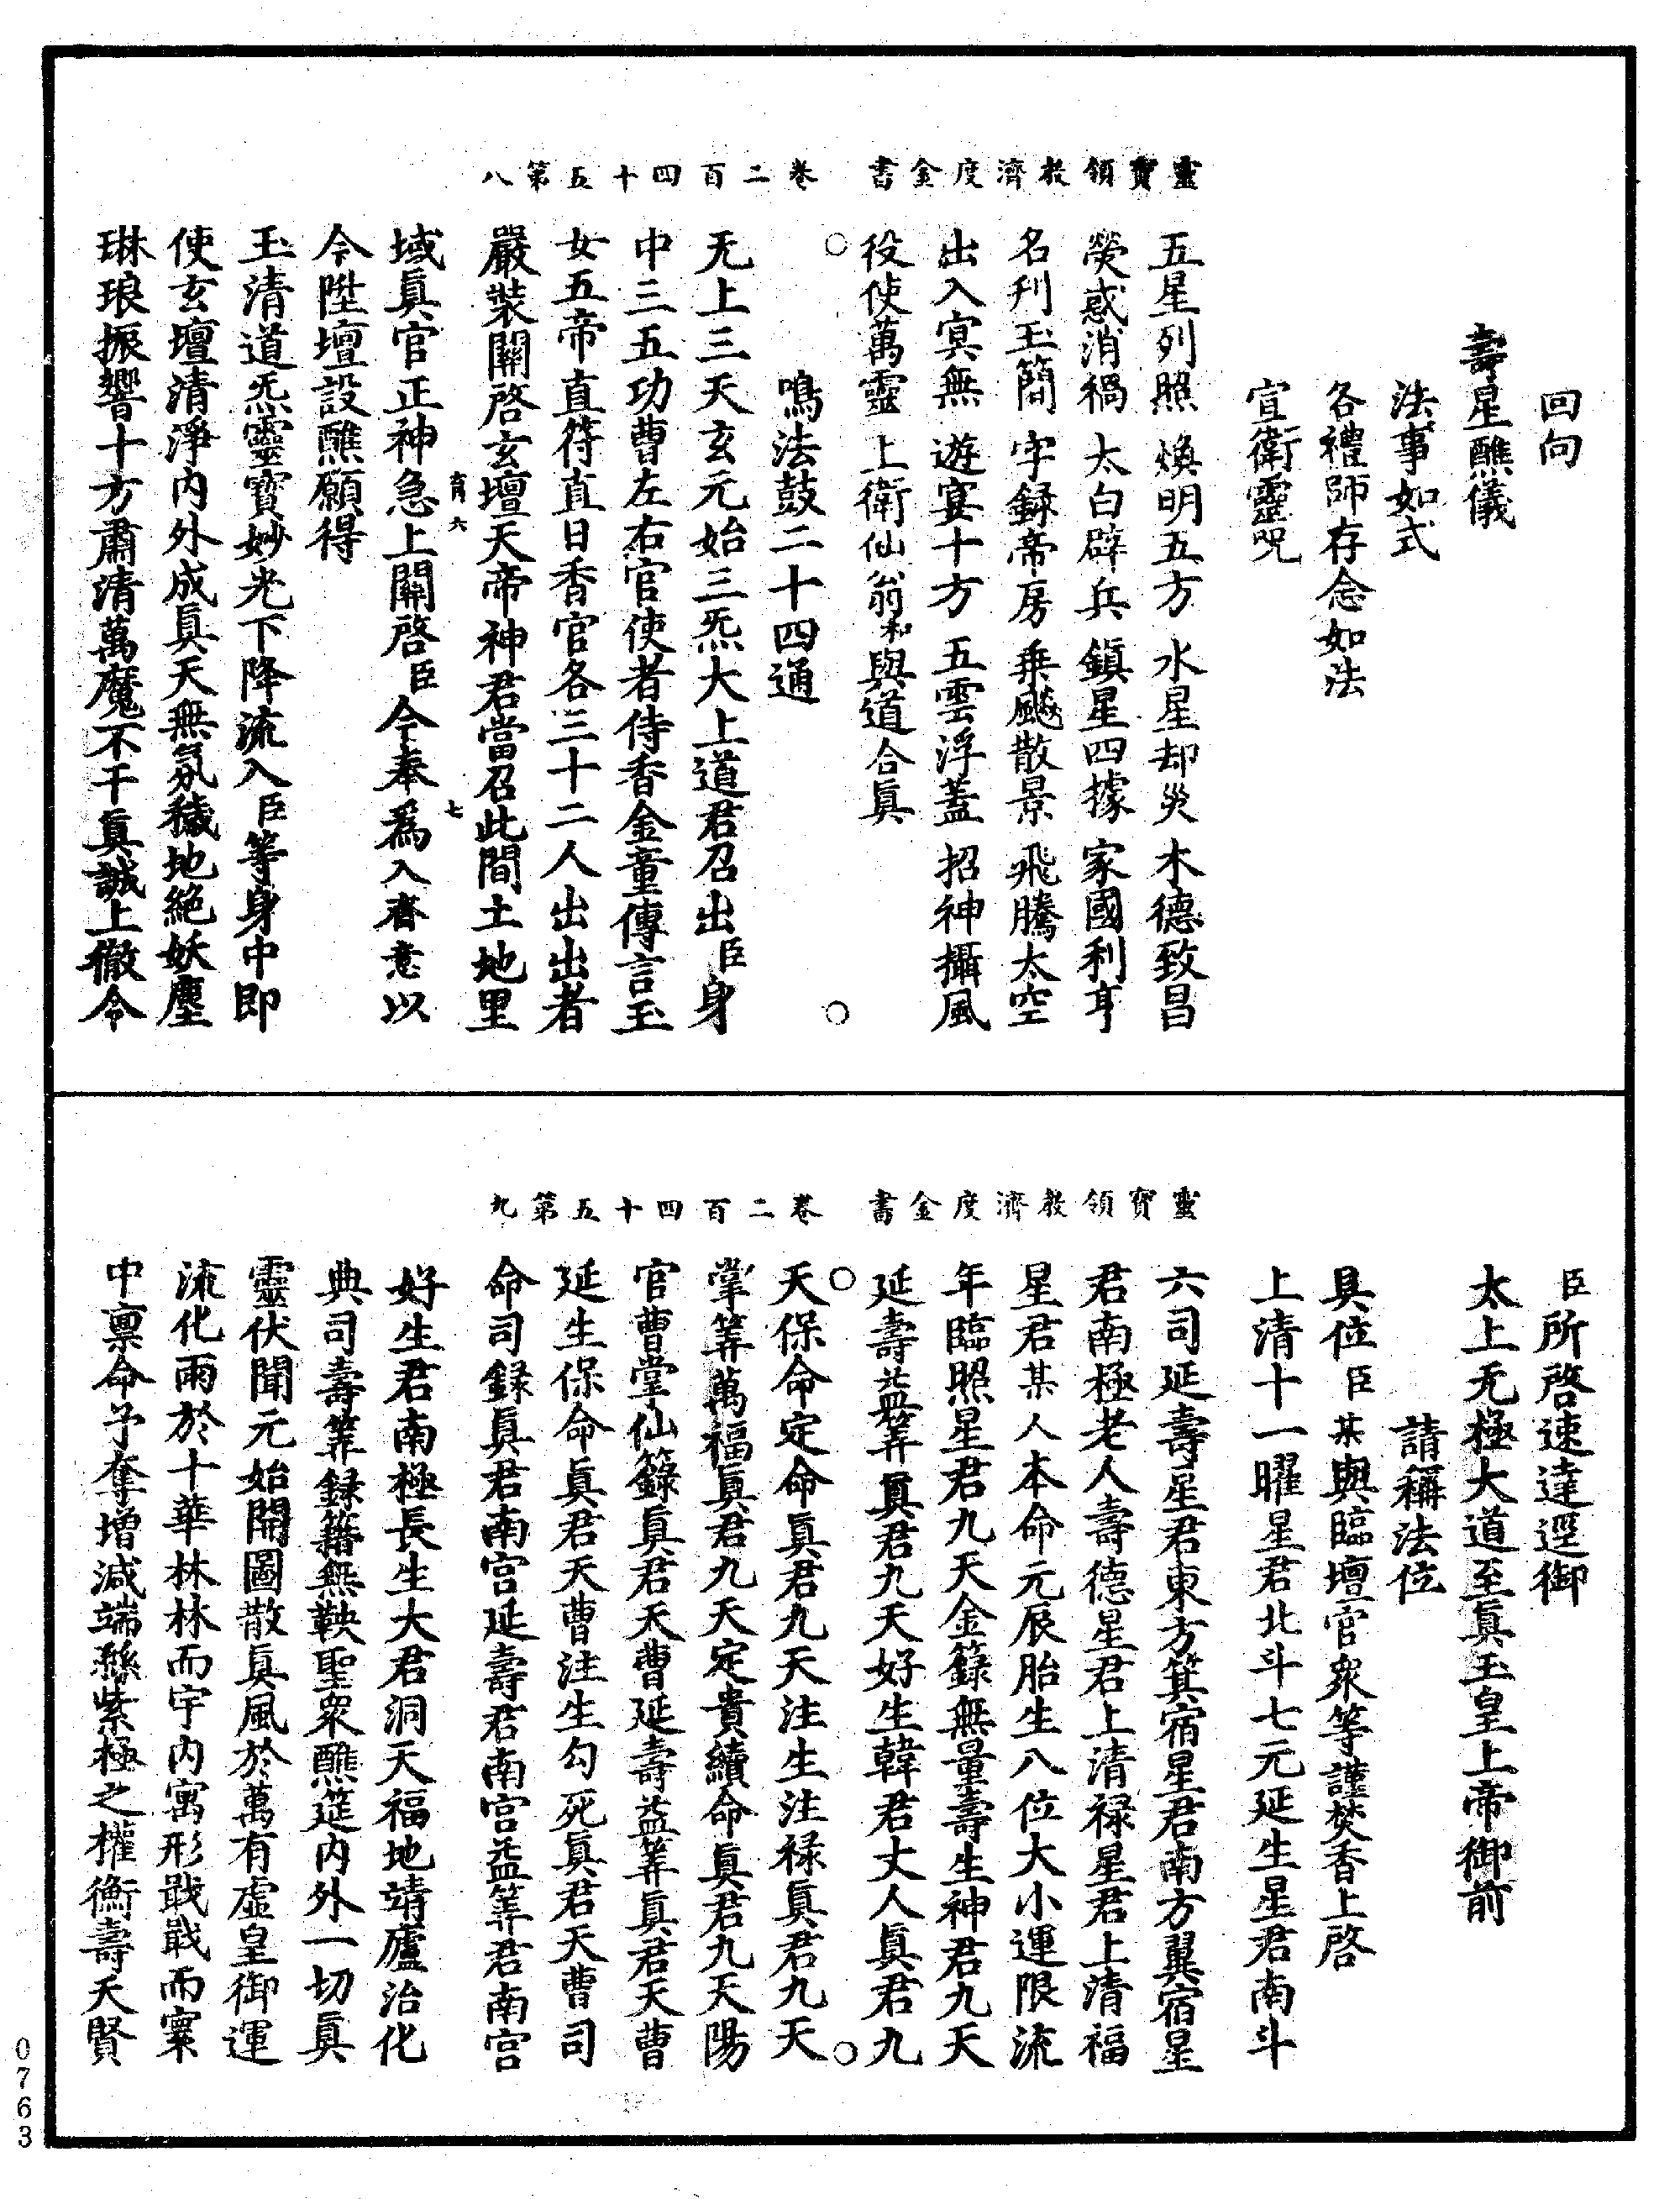 回向
壽星醮儀
法事如式
各禮師存念如法
宣衛靈咒
五星列照 煥明五方 水星却災 木德致昌
熒惑消禍 太白辟兵 鎮星四據 家國利亨
名刋玉簡 字録帝房 乗飈散景 飛騰太空
出入㝠無 遊宴十方 五雲浮蓋 招神攝風
役使萬靈 上衛仙翁和與道合眞
鳴法鼓二十四通
无上三天玄元始三炁大上道君召出臣身
中三五功曹左右官使者侍香金童傳言玉
女五帝直符直日香官各三十二人出出者
嚴裝關啓玄壇天帝神君當召此間土地里
域眞官正神急上關啓臣今奉爲入齋意以
今陞壇設醮願得
玉清道炁靈寳妙光下降流入臣等身中即
使玄壇清淨内外成眞天無氛穢地絶妖塵
琳琅振響十方肅清萬魔不干眞誠上徹令
靈寳領敎濟度金書 卷二百四十五第八
育六
七
臣所啓速達逕御
太上无極大道至眞玉皇上帝御前
請稱法位
具位臣某與臨壇官衆等謹焚香上啓
上清十一曜星君北斗七元延生星君南斗
六司延壽星君東方箕宿星君南方翼宿星
君南極老人壽德星君上清禄星君上清福
星君某人本命元辰胎生八位大小運限流
年臨照星君九天金籙無量壽生神君九天
延壽益筭眞君九天好生韓君丈人眞君九
天保命定命眞君九天注生注禄眞君九天
掌筭萬福眞君九天定貴續命眞君九天陽
官曹掌仙籙眞君天曹延壽益筭眞君天曹
延生保命眞君天曹注生勾死眞君天曹司
命司録眞君南宮延壽君南宮益筭君南宮
好生君南極長生大君洞天福地靖廬治化
典司壽筭録籍無鞅聖衆醮筵内外一切眞
靈伏聞元始開圖散眞風於萬有虛皇御運
流化雨於十華林林而宇内寓形戢戢而寰
中禀命予奪增減端繇紫極之權衡壽夭賢
靈寳領敎濟度金書 卷二百四十五第九
0763